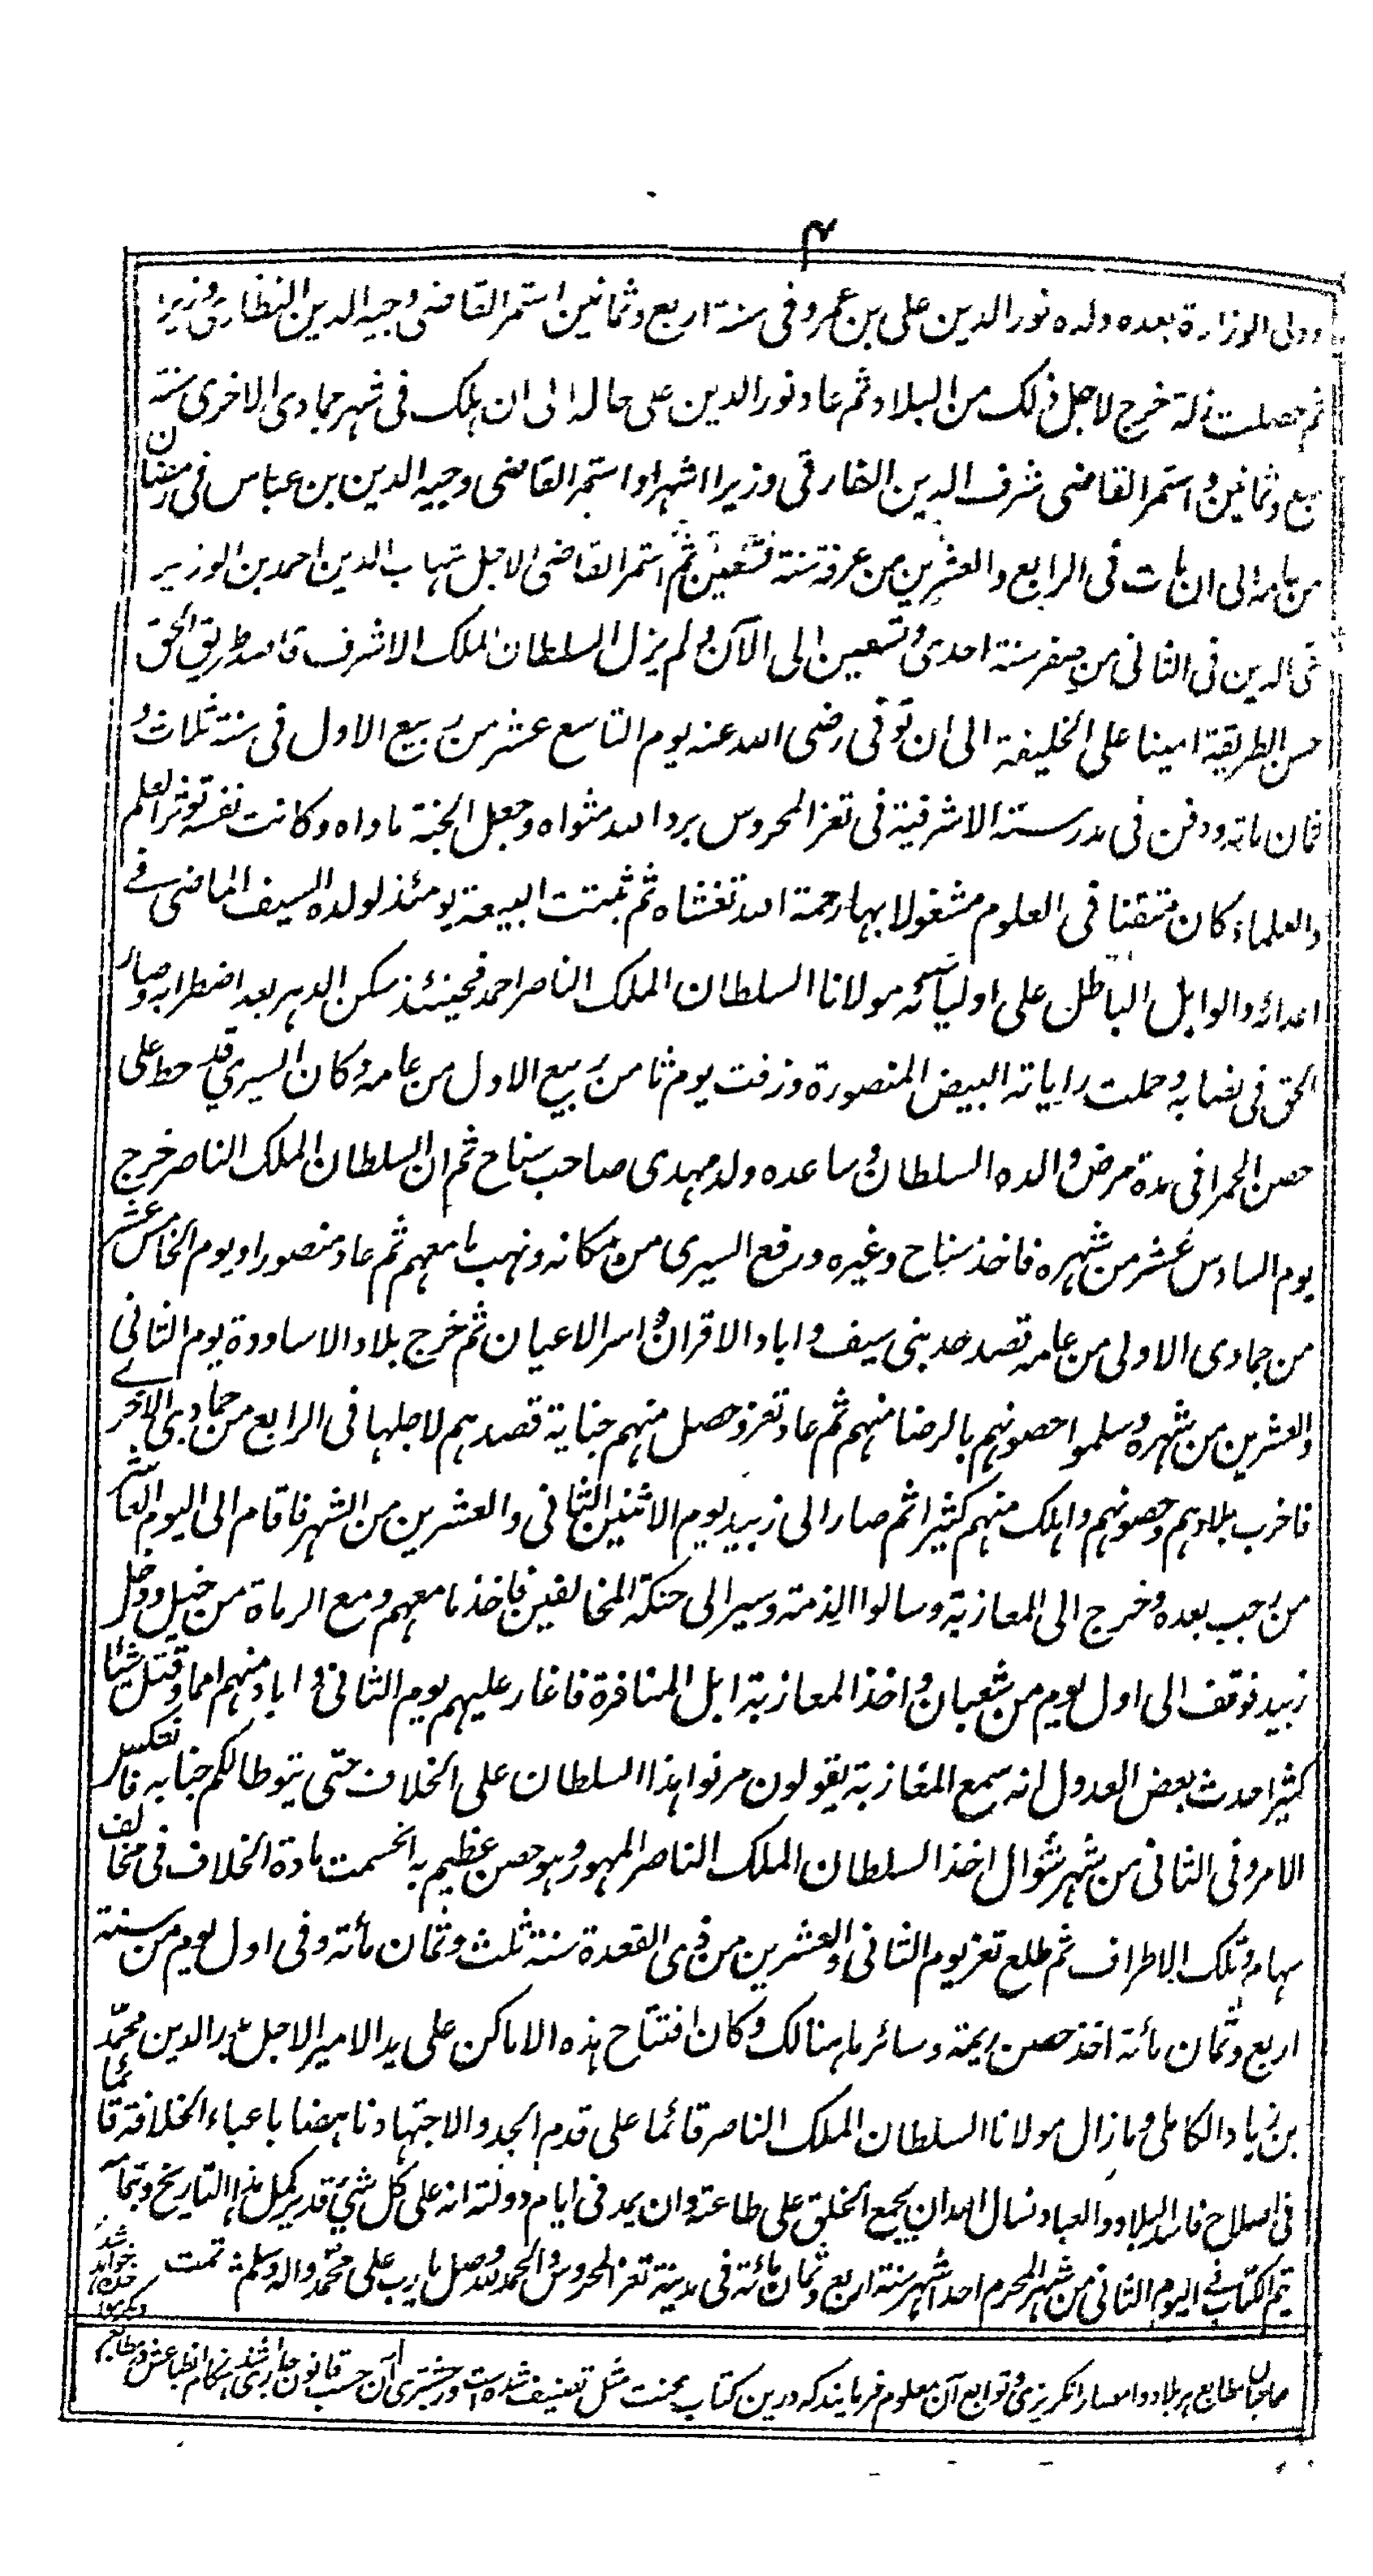 ۴
وولى الوزارة بعده ولده نور الدين على بن عمرو فى سنة اربع وثمانين استمر القاضى وجيه الدين النظارى وزيرا
ثم حصلت زلة خرج لاجل ذلك من البلاد ثم عاد نور الدين على حاله الى ان هلك فى شهر جمادى الاخرى سنة
سبع وثمانين و استمر القاضى شرف الدين الفارقى وزيرا اشهرا واستمر القاضى وجيه الدين بن عباس فى رمضان
من عامه الى ان مات فى الرابع والعشرين من عرفة سنة تسعين ثم استمر القاضى الاجل شهاب الدين احمد بن الوزير
تقى الدين فى الثانى من صفر سنة احدى وتسعين الى الآن ولم يزل السلطان الملك الاشرف قاصد طريق الحق
حسن الطريقة امينا على الخليفة الى ان توفى رضى الله عنه يوم التاسع عشر من ربيع الاول فى سنة ثلاث و
ثمان مائة ودفن فى مدرسته الاشرفية فى تعز المحروس برد الله مثواه وجعل الجنة ماواه وكانت نفسه توثر العلم
والعلماء كان متقنا فى العلوم مشغولا بها رحمة الله تغشاه ثم ثبتت البيعة يومئذ لولده السيف الماضى فے
اعدائه والوابل الباطل على اوليآئه مولانا السلطان الملك الناصر احمد فحينئذ سكن الدهر بعد اضطرابه وصار
الحق فى نصابه وحملت راياته البيض المنصورة وزفت يوم ثامن ربيع الاول من عامه وكان السيرى قد حط على
حصن الحمرا فى مدة مرض والده السلطان و ساعده ولد مهدى صاحب سناح ثم ان السلطان الملك الناصر خرج
يوم السادس عشر من شهره فاخذ سناح وغيره ورفع السيرى من مكانه ونهب ما معهم ثم عاد منصورا ويوم الخامس عشر
من جمادى الاولى من عامه قصد حد بنى سيف و اباد الاقران و اسر الاعيان ثم خرج بلاد الاساودة يوم الثانى
والعشرين من شهره وسلموا حصونهم بالرضا منهم ثم عاد تعز وحصل منهم جناية قصدهم لاجلها فى الرابع من جمادى الاخرے
فاخرب بلادهم وحصونهم واهلك منهم كثيرا ثم صار الى زبيد يوم الاثنين الثانى والعشرين من الشهر فاقام الى اليوم العاشر
من رجب بعده وخرج الى المعازبة وسالوا الذمة وسير الى حنكة المخالفين فاخذ ما معهم ومع الرماة من خيل ودخل
زبيد فوقف الى اول يوم من شعبان و اخذ المعازبة ابل المنافرة فاغار عليهم يوم الثانى و اباد منهم امما وقتل شيئا
كثيرا حدث بعض العدول انه سمع المعازبة يقولون مرنوا هذا السلطان على الخلاف حتى يتوطا لكم جنابه فانعكس
الامر وفى الثانى من شهر شوال اخذ السلطان الملك الناصر المهور وهو حصن عظيم به انحسمت مادة الخلاف فى مخالف
سهام وتلك الاطراف ثم طلع تعز يوم الثانى والعشرين من ذى القعدة سنة ثلث وثمان مائة وفى اول يوم من سنة
اربع وثمان مائة اخذ حصن ريمة وسائر ما هنالك وكان افتتاح هذه الاماكن على يد الامير الاجل بدر الدين محمد
بن زياد الكاملى وما زال مولانا السلطان الملك الناصر قائما على قدم الجد والاجتهاد ناهضا باعباء الخلافة قائما
فى اصلاح فاسد البلاد والعباد نسال الله ان يجمع الخلق على طاعته وان يمد فى ايام دولته انه على كل شئ قدير كمل هذا التاريخ وبتمامه
تم الكتاب فے اليوم الثانى من شهر المحرم احد اشهر سنة اربع وثمان مائة فى مدينة تعز المحروس والحمد لله وصل يا رب على محمد واله وسلم تمت
صاحبان مطابع هر بلاد و امصار انگريزى و توابع آن معلوم فرمايند كه درين كتاب محنت مثل تصنيف شده است ورجسترى آن حسب قانون جارى شد هنگام انطباعش در مطابع
ديگر مواخذه خواهد شد